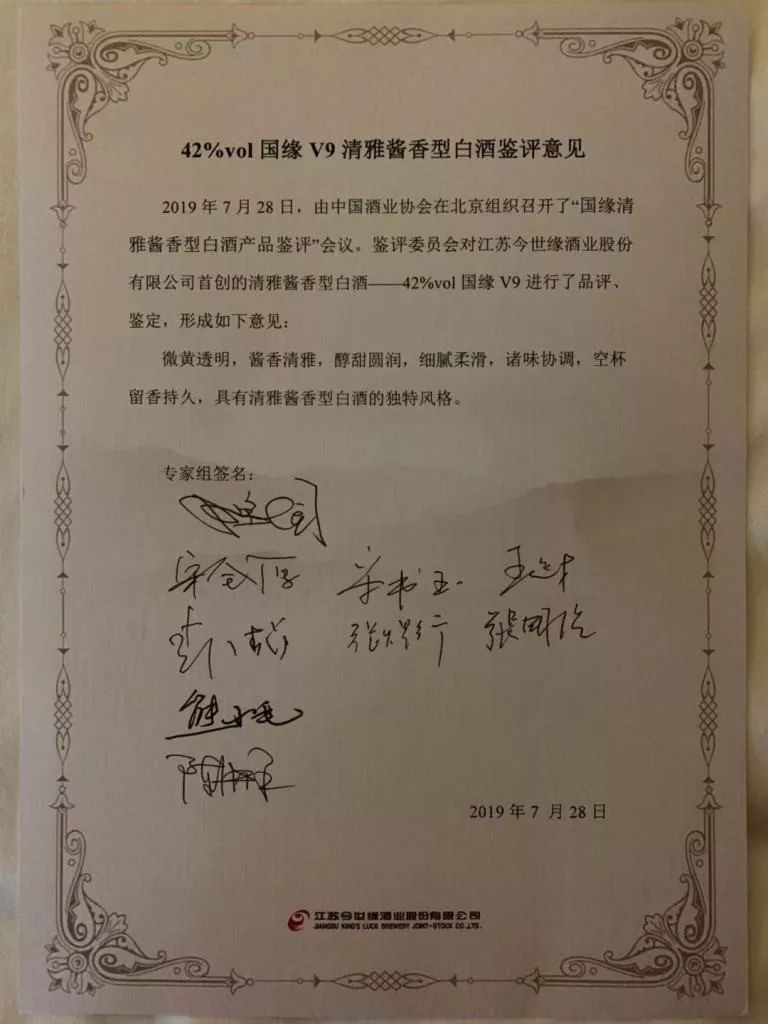 42%vol 国缘 V9 清雅酱香型白酒鉴评意见
2019 年 7 月 28 日，由中国酒业协会在北京组织召开了“国缘清
雅酱香型白酒产品鉴评”会议。鉴评委员会对江苏今世缘酒业股份
有限公司首创的清雅酱香型白酒——42%vol 国缘 V9 进行了品评、
鉴定，形成如下意见：
微黄透明，酱香清雅，醇甜圆润，细腻柔滑，诸味协调，空杯
留香持久，具有清雅酱香型白酒的独特风格。
专家组签名：
宋书玉
张国强
2019 年 7 月 28 日
江苏今世缘酒业股份有限公司
JIANGSU KING'S LUCK BREWERY JOINT-STOCK CO.,LTD.